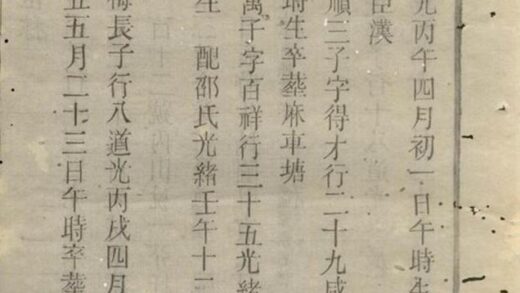 光丙午四月初一日午時生
臣漢
順三子字得才行二十九咸
時生卒塟麻車塘
萬千字百祥行三十五光緒
生 配邵氏光緒壬午十二
梅長子行八道光丙戌四月
五月二十三日午時卒塟